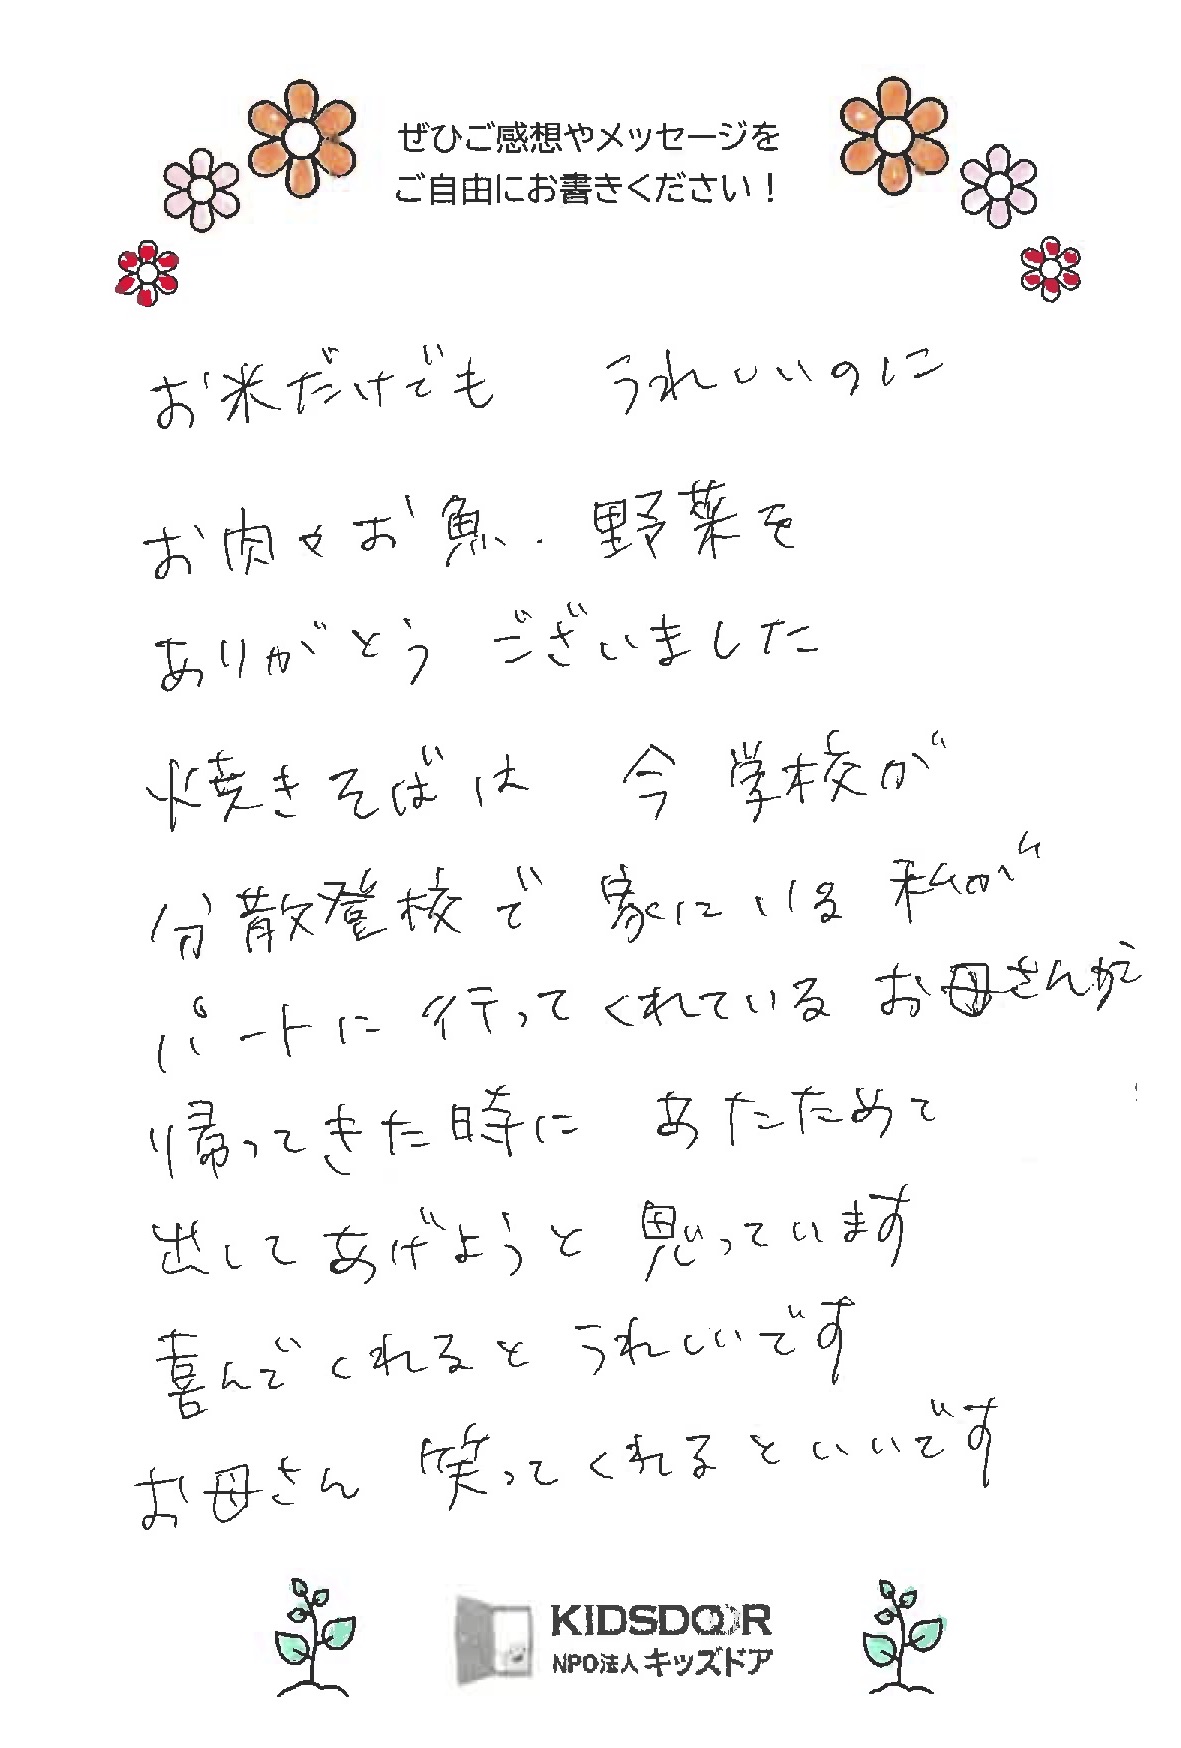 ぜひご感想やメッセージを
ご自由にお書きください！
お米だけでも うれしいのに
お肉やお魚、野菜を
ありがとう ございました
焼きそばは 今 学校が
分散登校で 家にいる 私が
パートに 行ってくれている お母さんが
帰ってきた時に あたためて
出してあげようと 思っています
喜んでくれると うれしいです
お母さん 笑ってくれるといいです
KIDSDOOR
NPO法人 キッズドア